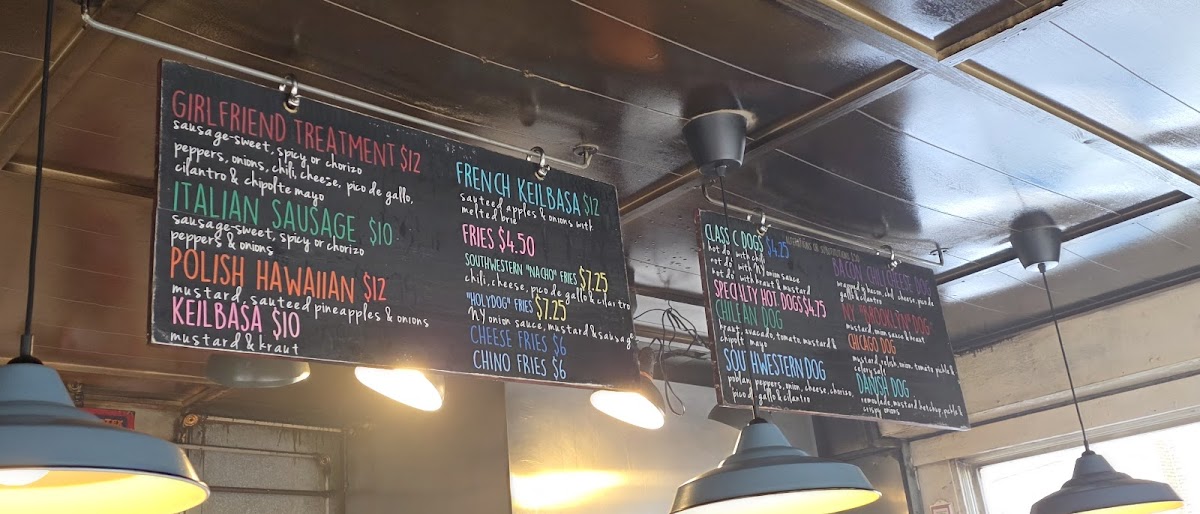 GIRLFRIEND TREATMENT $12
sausage-sweet, spicy or chorizo
peppers, onions, chili, cheese, pico de gallo,
cilantro & chipolte mayo
ITALIAN SAUSAGE $10
sausage-sweet, spicy or chorizo
peppers & onions
POLISH HAWAIIAN $12
mustard, sauteed pineapples & onions
KEILBASA $10
mustard & kraut
FRENCH KEILBASA $12
sauteed apples & onions with
melted brie
FRIES $4.50
SOUTHWESTERN "NACHO" FRIES $7.25
chili, cheese, pico de gallo & cilantro
"HOLYDOG" FRIES $7.25
NY onion sauce, mustard & sausage
CHEESE FRIES $6
CHINO FRIES $6
CLASS C DOGS $4.25
hot do with chili
hot d with NY onion sauce
hot d with kraut & mustard
SPECILTY HOT DOGS $4.75
CHILEAN DOG
kraut, avocado, tomato, mustard &
chipolt mayo
SOU HWESTERN DOG
poblan peppers, onion, cheese, chorizo,
pico d gallo & cilantro
BACON CHILI CHEESE DOG
wrapped n bacon, chil cheese, pico de
gallo & cilantro
NY "BROOKLYN" DOG
mustard, onion sauce & kraut
CHICAGO DOG
mustard, relish, onion, tomato, pickle &
celery salt
DANISH DOG
remoulade, mustard, ketchup, pickle &
crispy onions